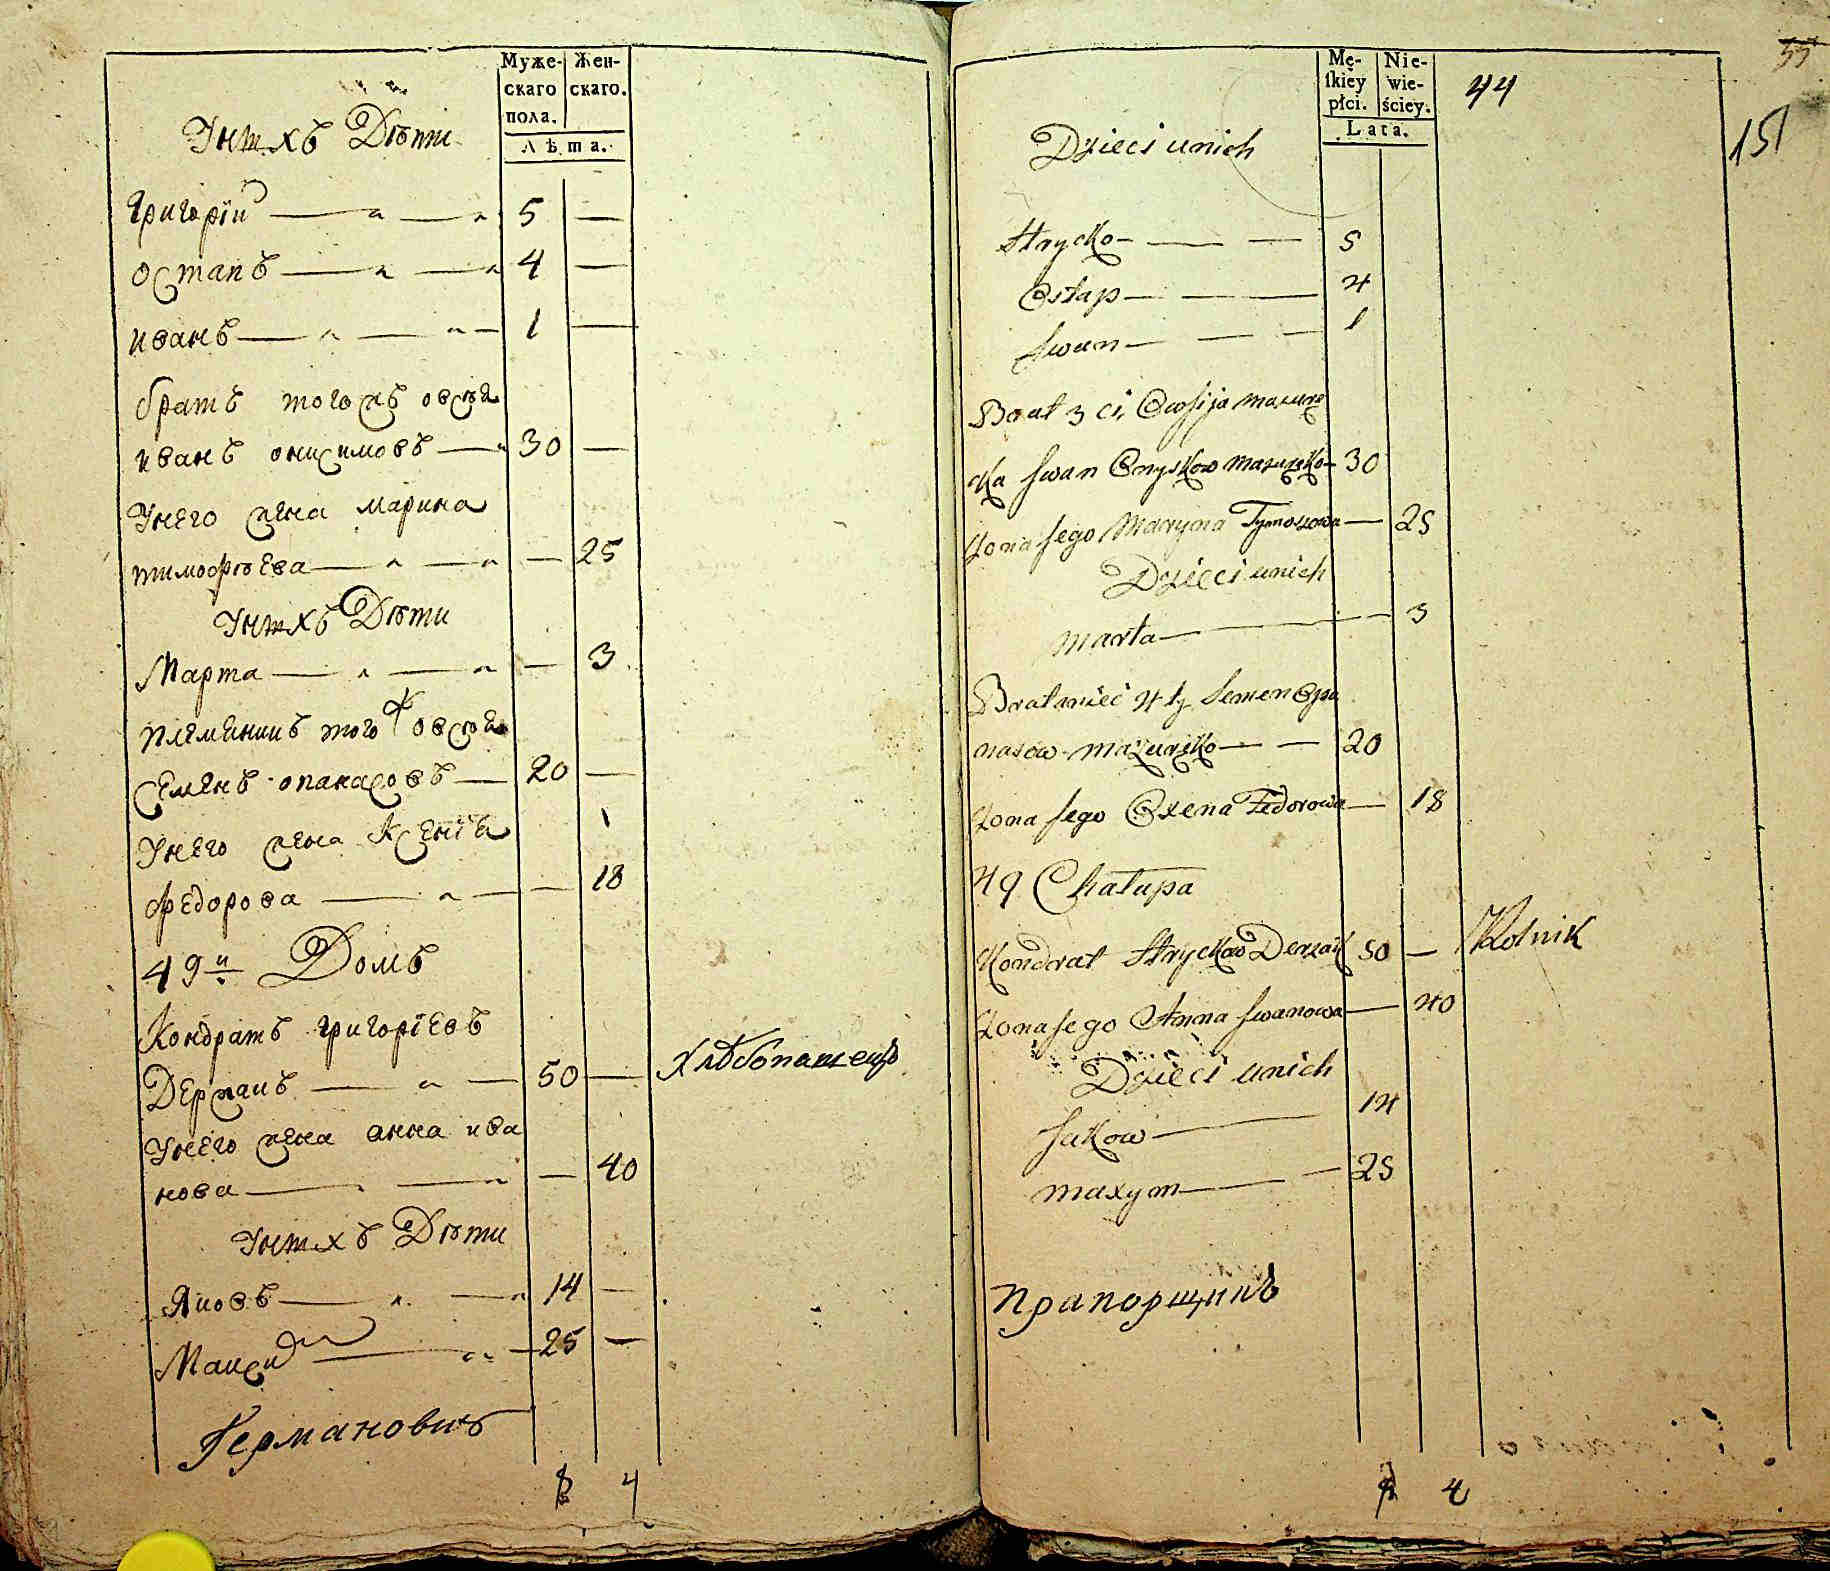 Муже-
скаго
пола.
Жен-
скаго.
Лѣта.
У нихъ Дѣти
Григорїй 5
Остапъ 4
Иванъ 1
братъ того жъ овсѣя
иванъ онисимовъ 30
У него жена марина
тимофѣева 25
У нихъ Дѣти
Марта 3
племяникъ того ж овсѣя
Семенъ опанасовъ 20
У него жена Ксенїя
федорова 18
49й Домъ
Кондратъ григорїевъ
Держакъ 50 Хлѣбопашецъ
У него жена анна ива
нова 40
У нихъ Дѣти
Яковъ 14
Максим 25
Германовичъ
4
Mę-
skiey
płci.
Nie-
wie-
ściey.
Lata.
44
151
Dzieci u nich
Hrycko 5
Ostap 4
Iwan 1
Brat 3 ci Owsija mazure
cka Iwan Onyskow mazurecko 30
Żona Jego Maryna Tymoszowa 25
Dzieci u nich
Marta 3
Brataniec 4 ty Semen Opa
nasow mazurecko 20
Żona Jego Oxena Fedorowa 18
49 Chałupa
Kondrat Hryckow Derzak 50 Rolnik
Żona Jego Anna Iwanowa 40
Dzieci u nich
Jakow 14
Maxym 25
Прапорщикъ
4